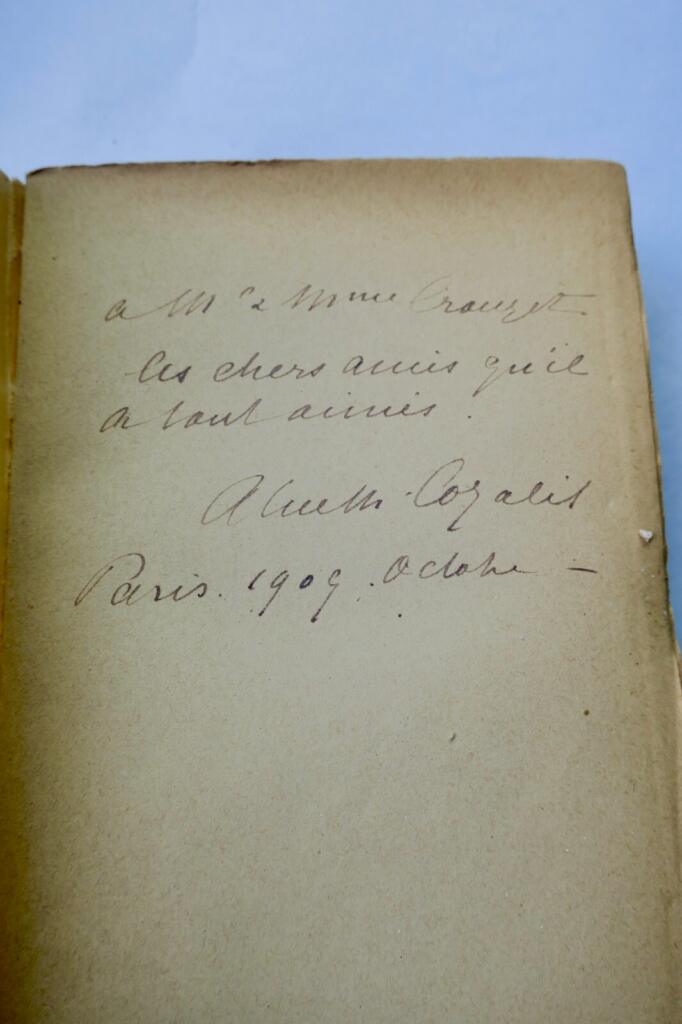 a M & Mme Crouzet
les chers amis qu'il
a tant aimés.
Cazalis
Paris. 1909. Octobre –